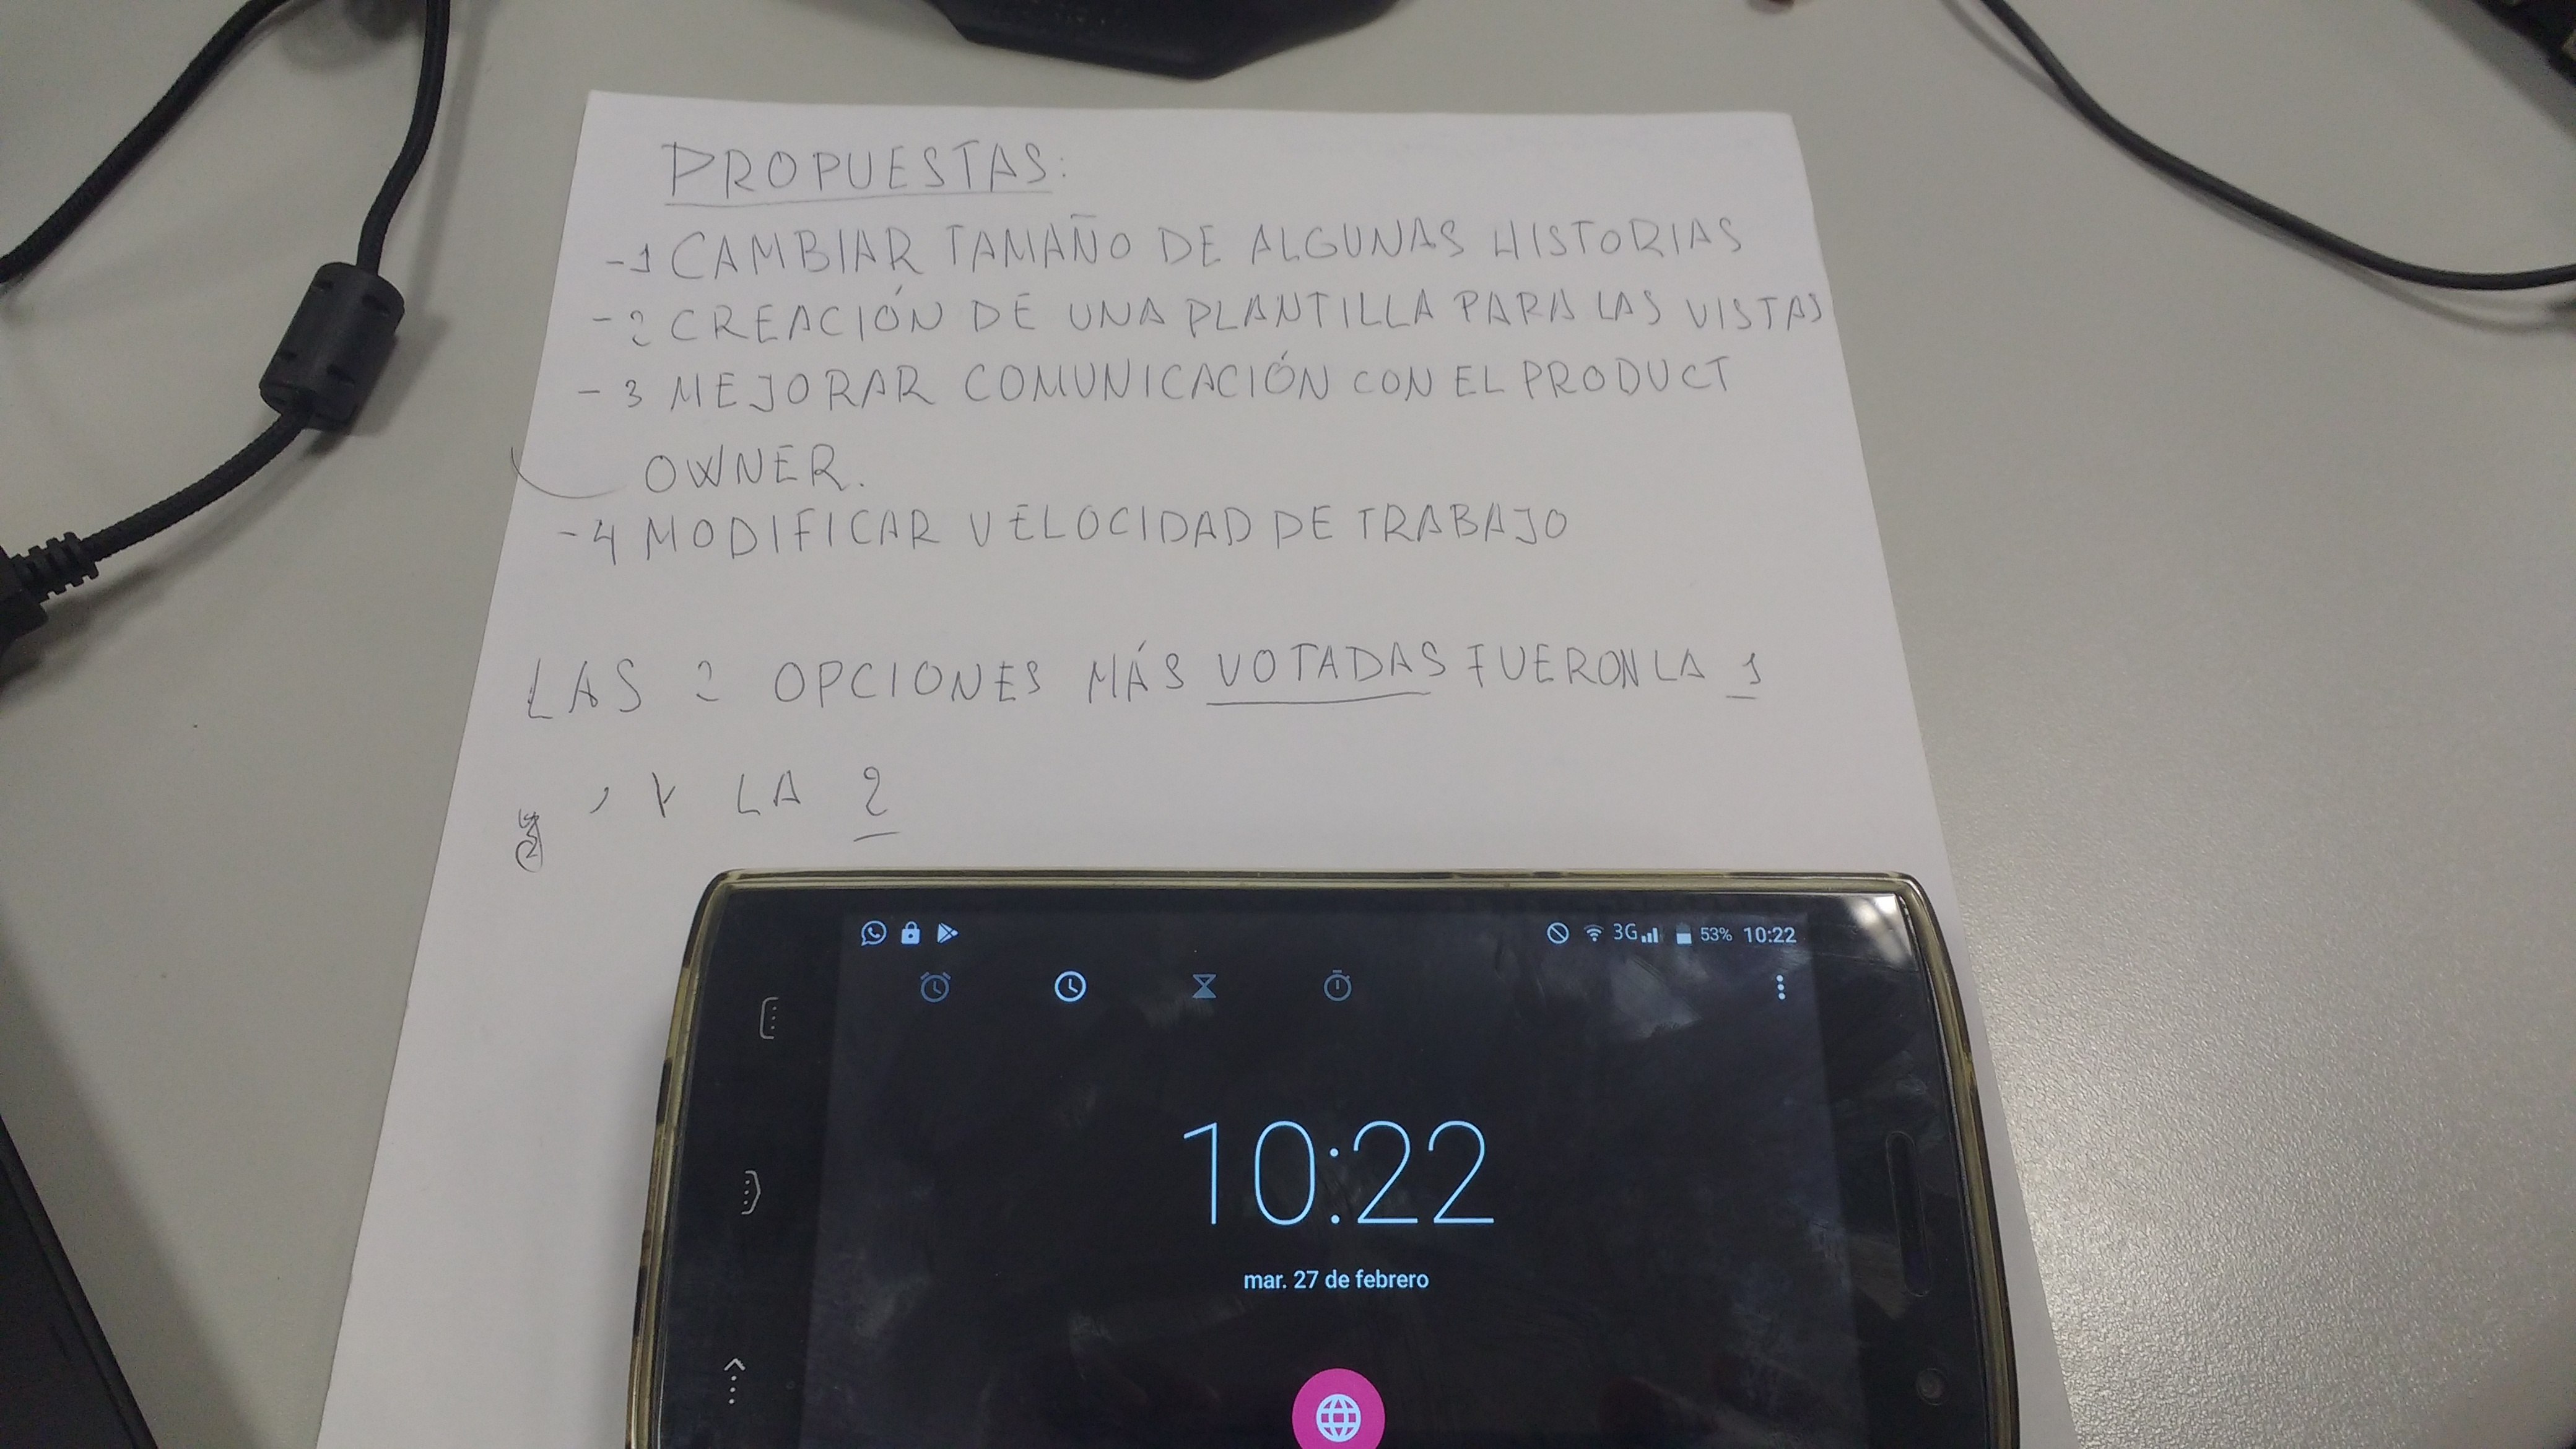 PROPUESTAS:
-1 CAMBIAR TAMAÑO DE ALGUNAS HISTORIAS
-2 CREACIÓN DE UNA PLANTILLA PARA LAS VISTAS
-3 MEJORAR COMUNICACIÓN CON EL PRODUCT
OWNER.
-4 MODIFICAR VELOCIDAD DE TRABAJO
LAS 2 OPCIONES MÁS VOTADAS FUERON LA 1
, Y LA 2
3G 53% 10:22
10:22
mar. 27 de febrero